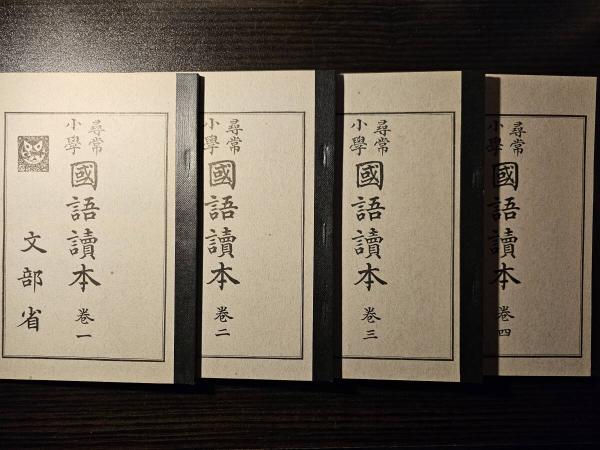 尋常
小學
國語讀本 巻一
文部省
尋常
小學
國語讀本 巻二
尋常
小學
國語讀本 巻三
尋常
小學
國語讀本 巻四